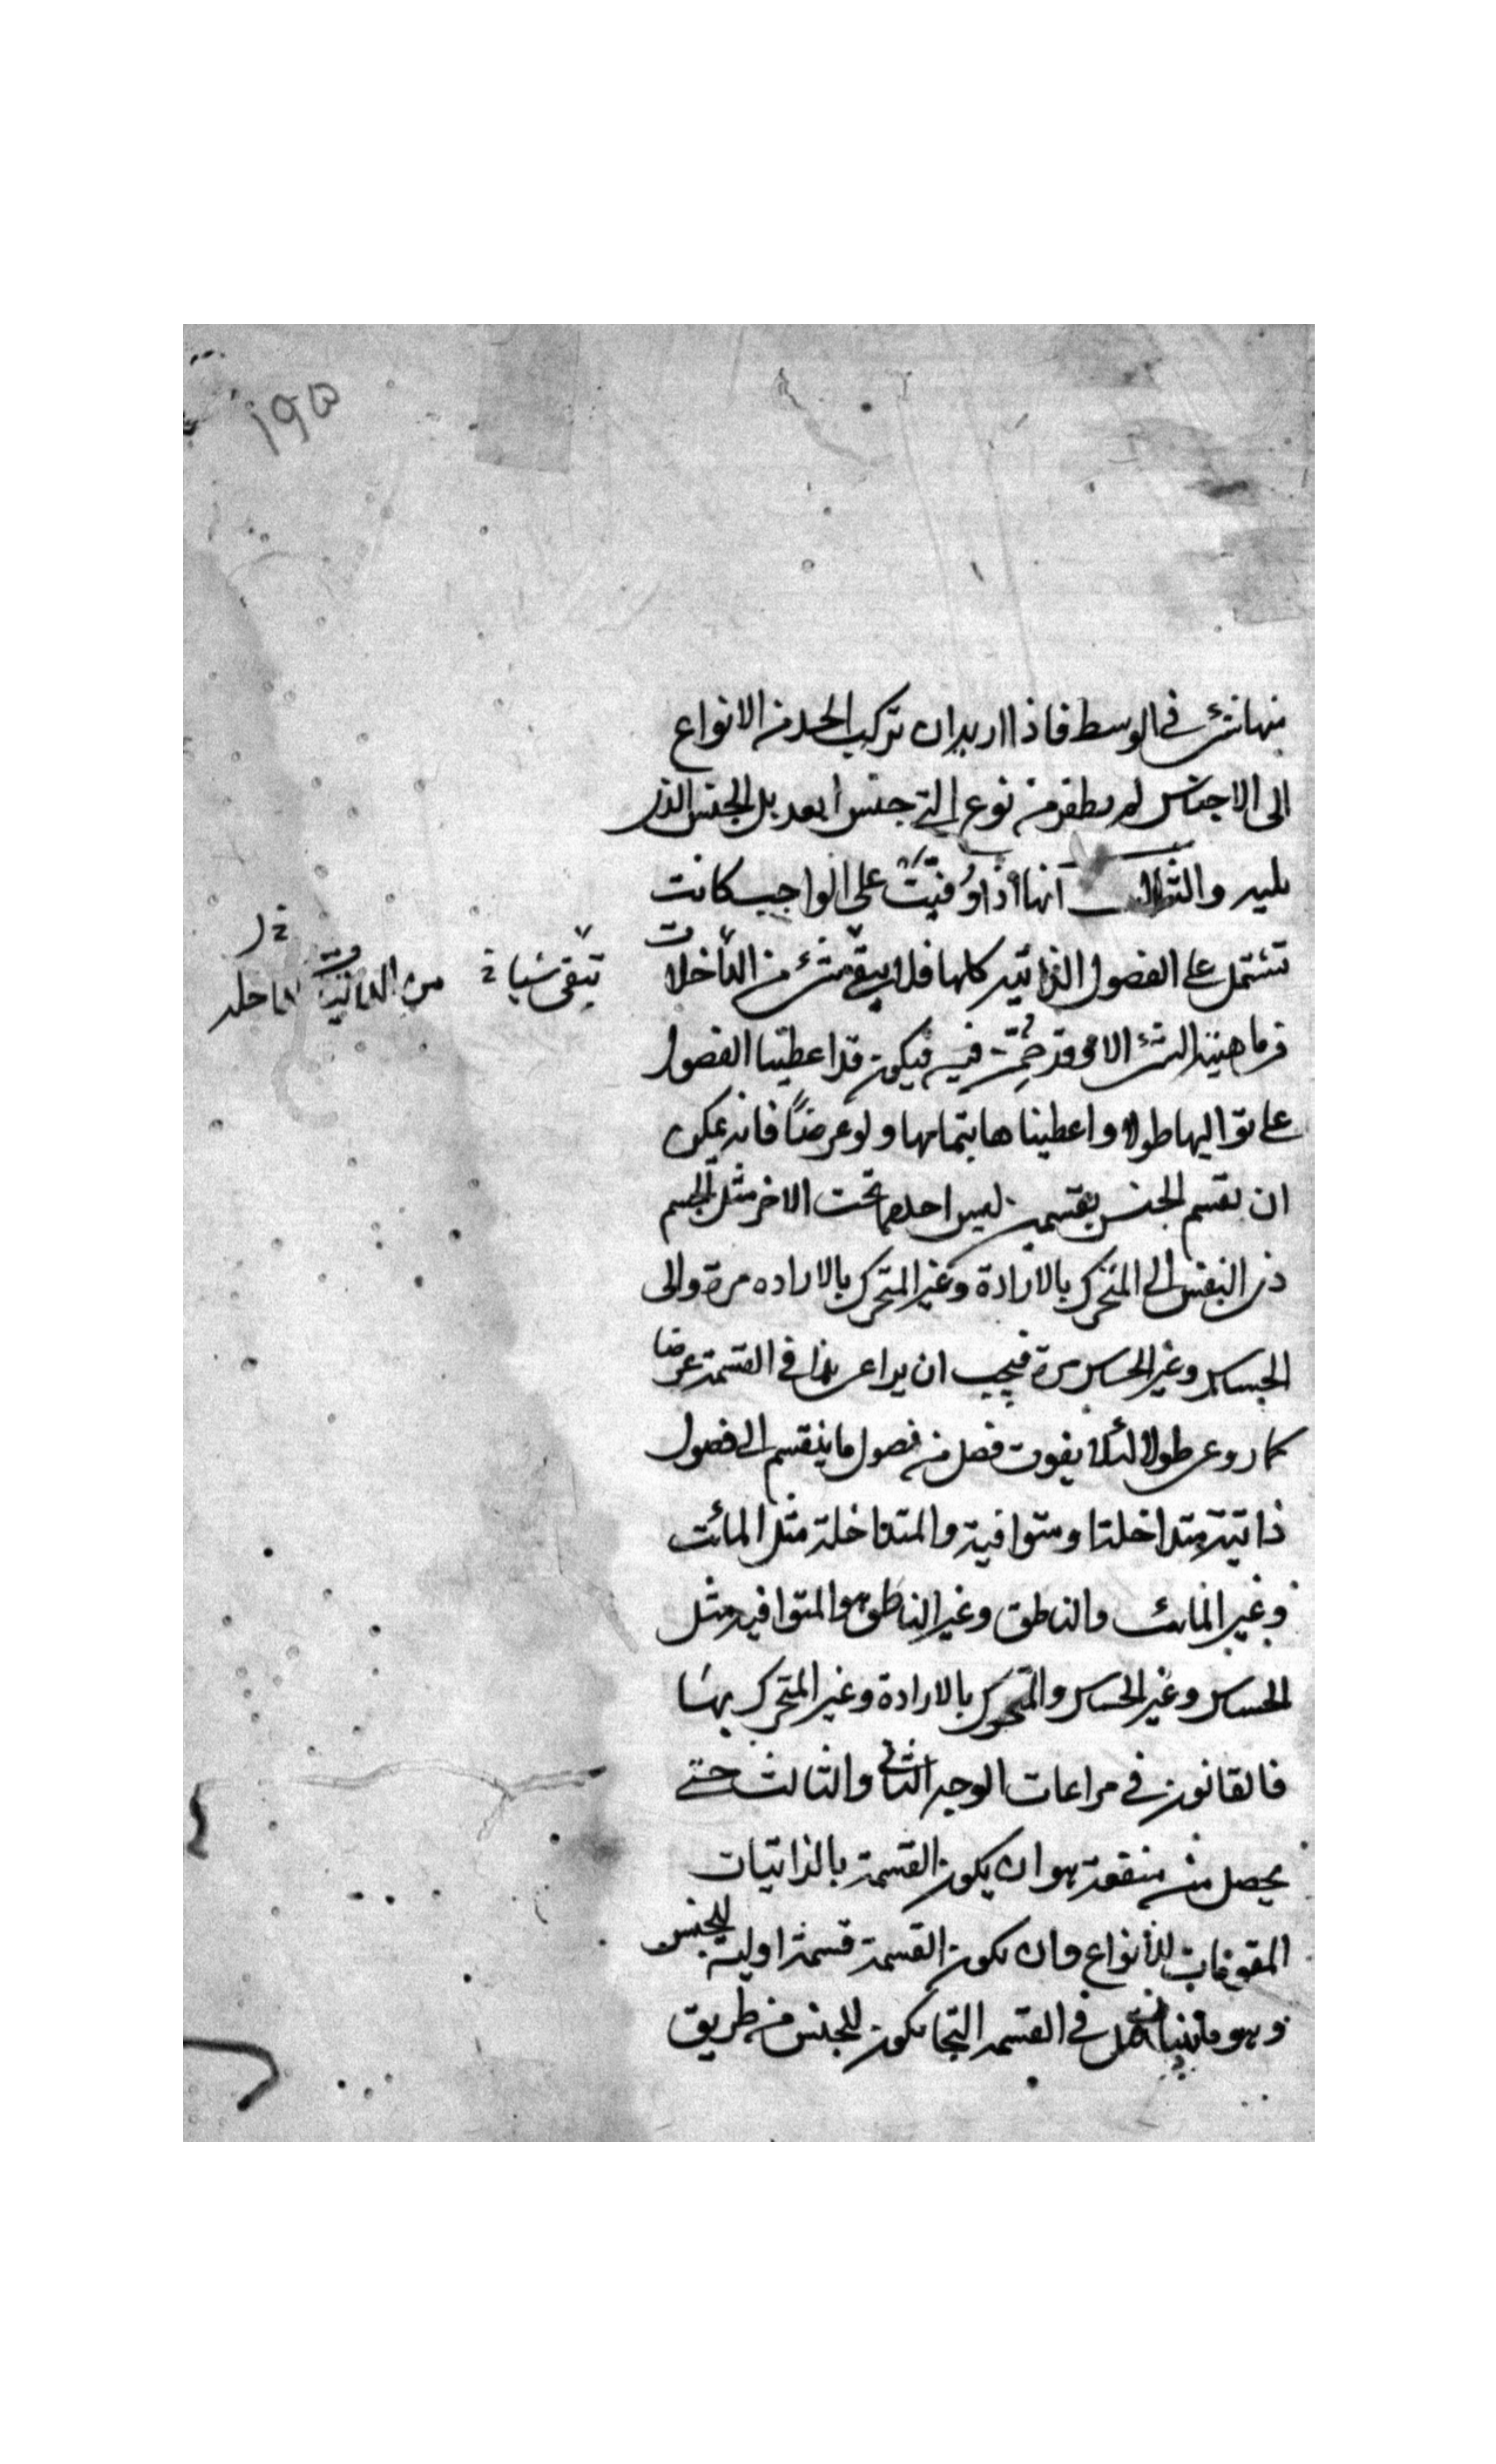 ١٩٥
منها شئ في الوسط فاذا اريد ان تركب الحد من الانواع
الى الاجناس لم يطفر من نوع الى جنس ابعد بل الجنس الذى
يليه والثالث انها اذا وفيت على الواجب كانت
تشتمل على الفصول الذاتيه كلها فلا يبقى شئ من الداخلات
فى ماهيته الشئ الا وقد ضمت فيه فيكون قد اعطينا الفصول
على تواليها طولا واعطيناها بتمامها ولو عرضاً فانه يمكن
ان يقسم الجنس بقسمين ليس احدهما تحت الاخر مثل الجسم
ذى النفس الى المتحرك بالارادة وغير المتحرك بالاراده مرة والى
الحساس وغير الحساس مرة فيجب ان يراعى هذا في القسمة عرضا
كما روعى طولا لئلا يفوت فصل من فصول ما ينقسم الى فصول
ذاتية متداخلة ومتوافية والمتداخلة مثل المائت
وغير المائت والناطق وغير الناطق والمتوافيه مثل
الحساس وغير الحساس والمتحرك بالارادة وغير المتحرك بها
فالقانون في مراعات الوجه الثانى والثالث حتى
يحصل منه منفعة هو ان يكون القسمة بالذاتيات
المقومات للأنواع وان يكون القسمة قسمة اولية للجنس
وهو في القسمة التى يكون للجنس من طريق
تبقى شيا
من الداخله